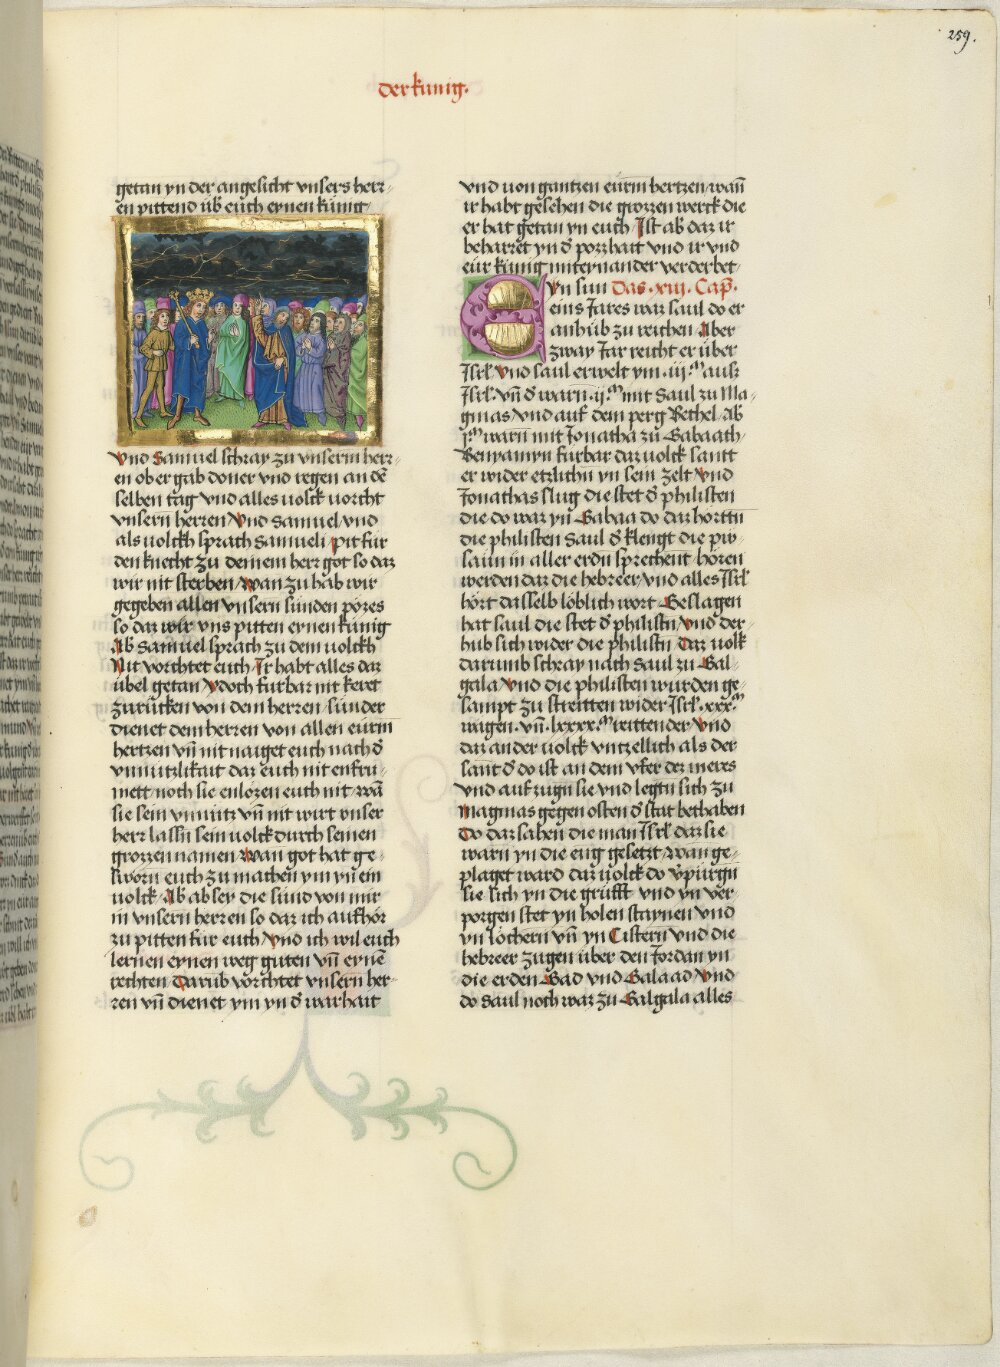 259.
der kunig.
getan yn der angesicht vnsers herr-
en pittend üb euch eynen künig
Vnd Samuel schray zu vnserm herr-
en ob er gab doner vnd regen an dē
selben tag vnd alles uolck uorcht
vnsern herren Vnd Samuel vnd
als uolckh sprach Samueli pit fur
den knecht zu deinem herr got so daz
wir nit sterben wan zu hab wir
gegeben allen vnsern sunden pözes
so daz wir vns pitten eynen künig
Ab Samuel sprach zu dem uolckh
Nit vorchtet euch Ir habt alles daz
übel getan ydoch furbaz nit keret
zurucken von dem herren sunder
dienet dem herren von allen eurm
hertzen vn̄ nit naiget euch nach d̓
vnnutzlikait daz euch nit enfru-
mett noch sie enlozen euch nit wā
sie sein vnnütz vn̄ nit wirt vnser
herr lassn̄ sein uolck durch seinen
grozzen namen wan got hat ge-
sworn euch zu machen ym yn̄ ein
uolck Ab abser die sund von mir
in vnsern herren so daz ich aufhör
zu pitten fur euch Vnd ich wil euch
lernen eynen weg guten vn̄ eynē
rechten Darüb vorchtet vnsern her-
ren vn̄ dienet ym yn d̓ warhait
vnd uon gantzen eurm hertzen wan̄
ir habt gesehen die grozzen werck die
er hat getan yn euch Ist ab daz ir
beharret yn d̓ pozzhait vnd ir vnd
eur kunig miteynander verderbet
Eyn sun Das .xiii. Cap̄.
eins Jares waz saul do er
anhub zu reichen Aber
zway Jar reicht er über
Isrl̄. Vnd saul erwelt ym .iij.ᵐ aus
Isrl̄. vn̄ d̓ warn .ij.ᵐ mit Saul zu Ma-
gmas vnd auf dem perg Bethel Ab
j.ᵐ warn mit Jonatha zu Gabaath
Benyamyn furbaz daz uolck santt
er wider etzlichn̄ yn sein zelt Vnd
Jonathas slug die stet d̓ philisten
die do waz yn̄ Gabaa do daz hörttn̄
die philisten Saul d̓ klengt die pu-
saun in aller erdn̄ sprechent hören
werden daz die hebreer vnd alles Isrl̄
hört dasselb löblich wort Geslagen
hat saul die stet d̓ philistn̄ vnd der
hub sich wider die philistn̄ Daz uolk
darumb schray nach Saul zu Gal-
gala Vnd die philisten wurden ge-
sampt zu streitten wider Isrl̄ .xxx.ᵐ
wagen. vn̄ .lxxxx.ᵐ reittender Vnd
daz ander uolck vntzellich als der
sant d̓ do ist an dem vfer dez meres
vnd aufzugn̄ sie vnd legtn̄ sich zu
Magmas gegen osten d̓ stat bethaben
Do daz sahen die man Isrl̄ daz sie
warn yn die eng gesetzt wan ge-
plaget ward daz uolck do v̓purgn̄
sie sich yn die grufft vnd yn ver-
porgen stet yn holen staynen vnd
yn löchern vn̄ yn Cistern vnd die
hebreer zugen über den Jordan yn
die erden Gad vnd Galaad Vnd
do saul noch waz zu Galgala alles